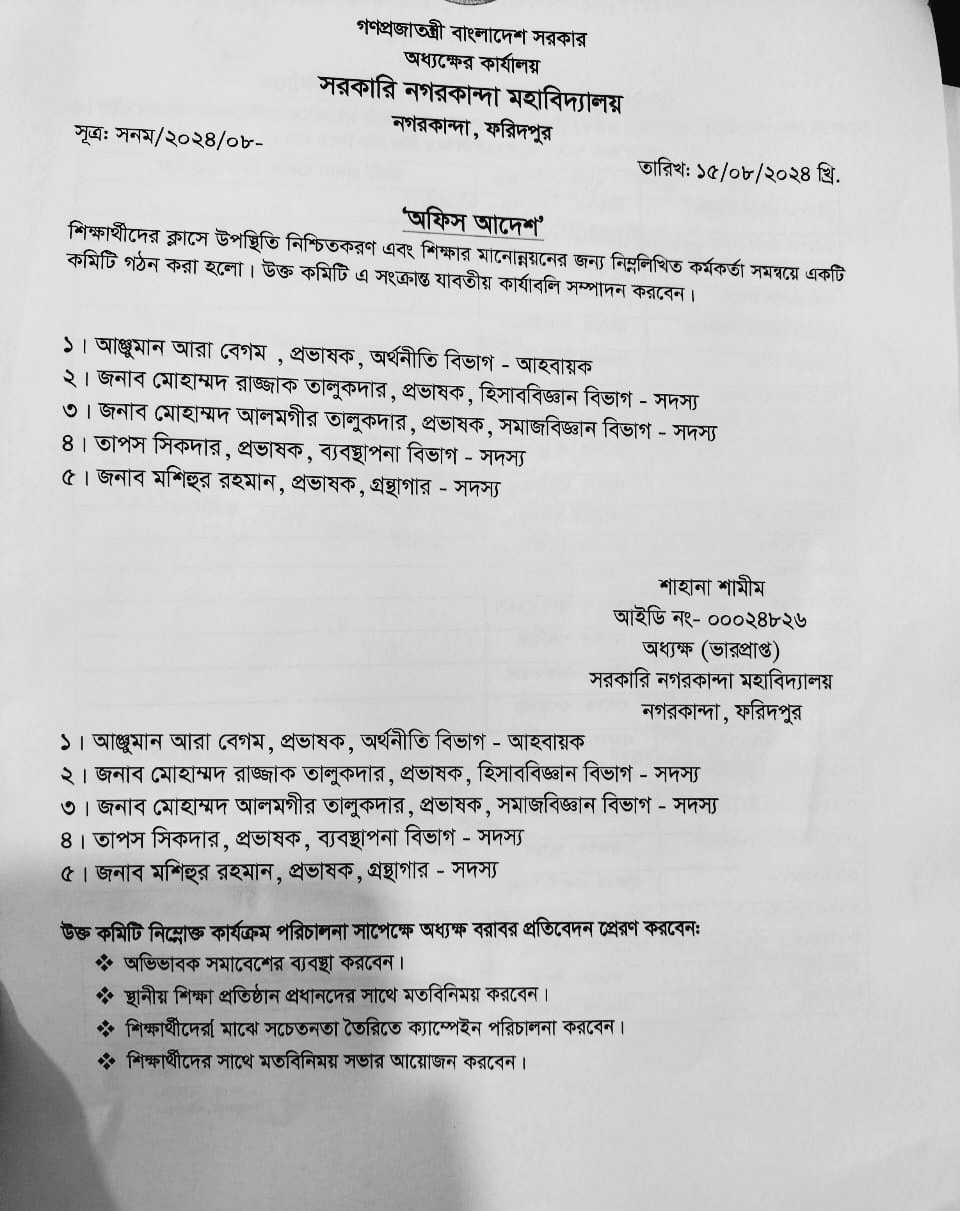 গণপ্রজাতন্ত্রী বাংলাদেশ সরকার
অধ্যক্ষের কার্যালয়
সরকারি নগরকান্দা মহাবিদ্যালয়
নগরকান্দা, ফরিদপুর
সূত্র: সনম/২০২৪/০৮-
তারিখ: ১৫/০৮/২০২৪ খ্রি.
‘অফিস আদেশ’
শিক্ষার্থীদের ক্লাসে উপস্থিতি নিশ্চিতকরণ এবং শিক্ষার মানোন্নয়নের জন্য নিম্নলিখিত কর্মকর্তা সমন্বয়ে একটি
কমিটি গঠন করা হলো। উক্ত কমিটি এ সংক্রান্ত যাবতীয় কার্যাবলি সম্পাদন করবেন।
১। আঞ্জুমান আরা বেগম , প্রভাষক, অর্থনীতি বিভাগ - আহবায়ক
২। জনাব মোহাম্মদ রাজ্জাক তালুকদার, প্রভাষক, হিসাববিজ্ঞান বিভাগ - সদস্য
৩। জনাব মোহাম্মদ আলমগীর তালুকদার, প্রভাষক, সমাজবিজ্ঞান বিভাগ - সদস্য
৪। তাপস সিকদার, প্রভাষক, ব্যবস্থাপনা বিভাগ - সদস্য
৫। জনাব মশিহুর রহমান, প্রভাষক, গ্রন্থাগার - সদস্য
শাহানা শামীম
আইডি নং- ০০০২৪৮২৬
অধ্যক্ষ (ভারপ্রাপ্ত)
সরকারি নগরকান্দা মহাবিদ্যালয়
নগরকান্দা, ফরিদপুর
১। আঞ্জুমান আরা বেগম, প্রভাষক, অর্থনীতি বিভাগ - আহবায়ক
২। জনাব মোহাম্মদ রাজ্জাক তালুকদার, প্রভাষক, হিসাববিজ্ঞান বিভাগ - সদস্য
৩। জনাব মোহাম্মদ আলমগীর তালুকদার, প্রভাষক, সমাজবিজ্ঞান বিভাগ - সদস্য
৪। তাপস সিকদার, প্রভাষক, ব্যবস্থাপনা বিভাগ - সদস্য
৫। জনাব মশিহুর রহমান, প্রভাষক, গ্রন্থাগার - সদস্য
উক্ত কমিটি নিম্নোক্ত কার্যক্রম পরিচালনা সাপেক্ষে অধ্যক্ষ বরাবর প্রতিবেদন প্রেরণ করবেন:
❖ অভিভাবক সমাবেশের ব্যবস্থা করবেন।
❖ স্থানীয় শিক্ষা প্রতিষ্ঠান প্রধানদের সাথে মতবিনিময় করবেন।
❖ শিক্ষার্থীদের[ মাঝে সচেতনতা তৈরিতে ক্যাম্পেইন পরিচালনা করবেন।
❖ শিক্ষার্থীদের সাথে মতবিনিময় সভার আয়োজন করবেন।